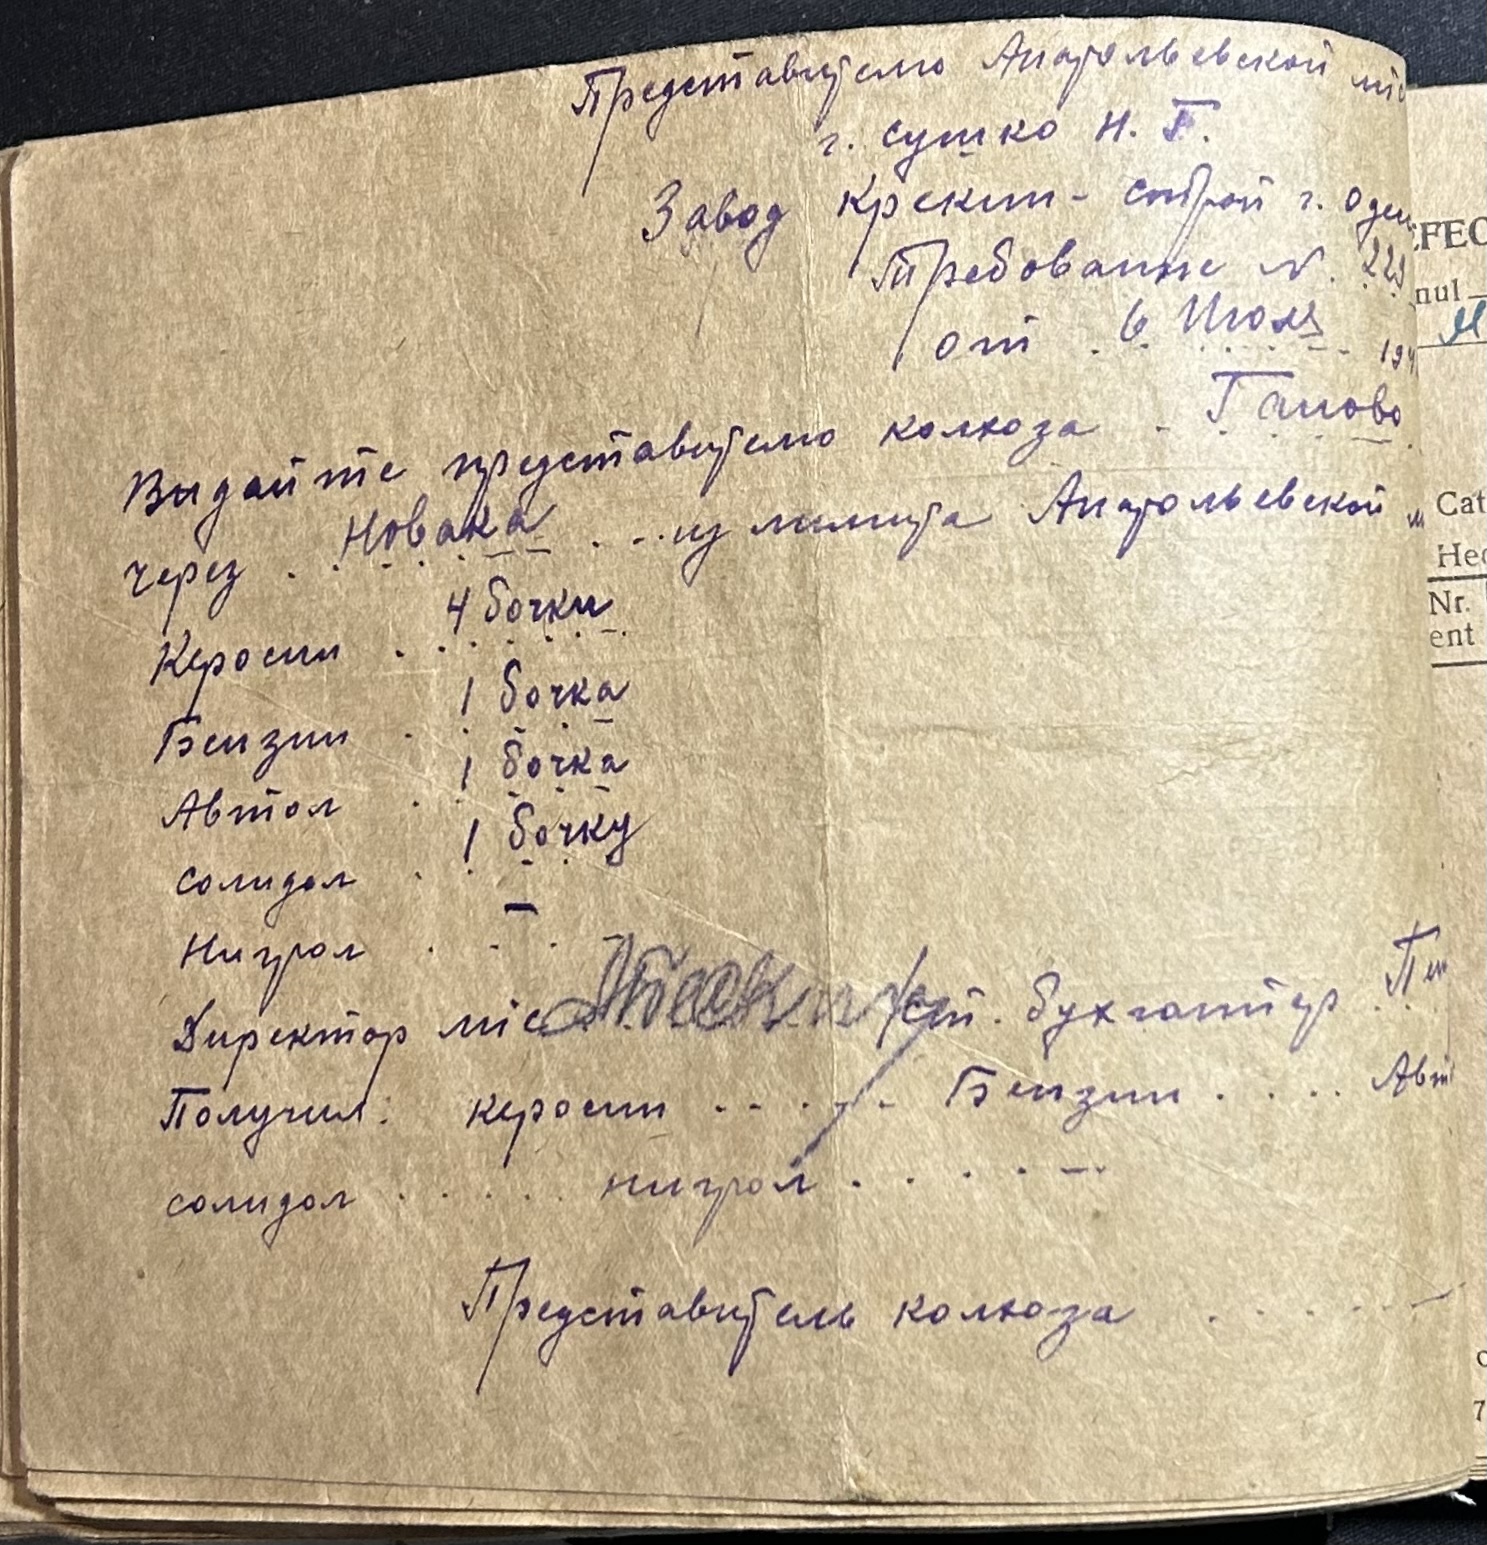 Представителю Анатольевской мтс
г. Сушко Н. Г.
Завод Крекин-строй г. Одес
Требование N. 229
от . 6 Июля 194
Выдайте представителю колхоза . Ганово
через . Новака . из лимита Анатольевской м
Керосин . . 4 бочки
Бензин . . 1 бочка
Автол . . 1 бочка
солидол . . 1 бочку
Нигрол . - .
Директор мтс ст. бухгалтер .
Получил: керосин . . . . . Бензин . . . . Авт
солидол . . . . . нигрол . . . . .
Представитель колхоза . . . . .
EFEC
nul
Cat
Nr.
ent